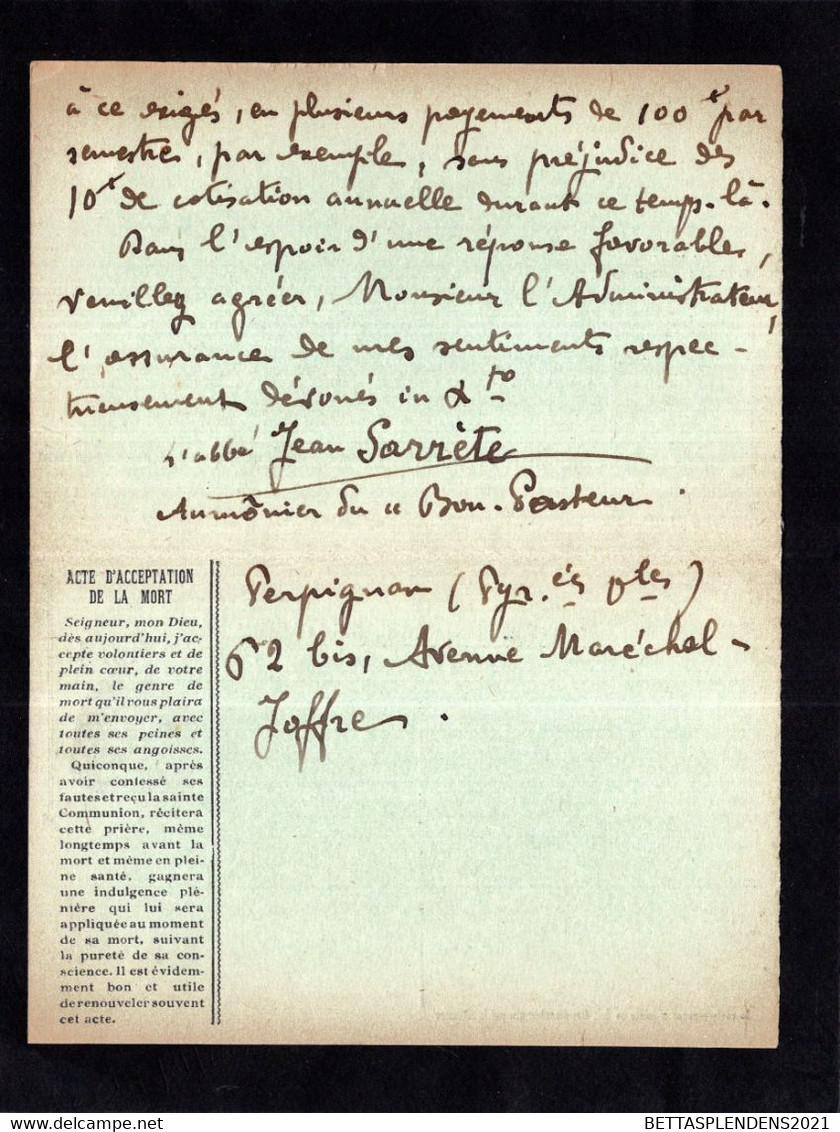 à ce exigés, en plusieurs payements de 100 f par
semestres, par exemple, sans préjudice des
10 f de cotisation annuelle durant ce temps-là.
Dans l'espoir d'une réponse favorable,
veuillez agréer, Monsieur l'Administrateur,
l'assurance de mes sentiments respec-
tueusement dévoués in Xto
l'abbé Jean Sarrète
Aumônier du "Bon-Pasteur.
Perpignan (Pyr.ées Oles)
62 bis, Avenue Maréchal-
Joffre.
ACTE D'ACCEPTATION
DE LA MORT
Seigneur, mon Dieu,
dès aujourd'hui, j'ac-
cepte volontiers et de
plein cœur, de votre
main, le genre de
mort qu'il vous plaira
de m'envoyer, avec
toutes ses peines et
toutes ses angoisses.
Quiconque, après
avoir confessé ses
fautes et reçu la sainte
Communion, récitera
cette prière, même
longtemps avant la
mort et même en plei-
ne santé, gagnera
une indulgence plé-
nière qui lui sera
appliquée au moment
de sa mort, suivant
la pureté de sa con-
science. Il est évidem-
ment bon et utile
de renouveler souvent
cet acte.
delcampe.net
BETTASPLENDENS2021